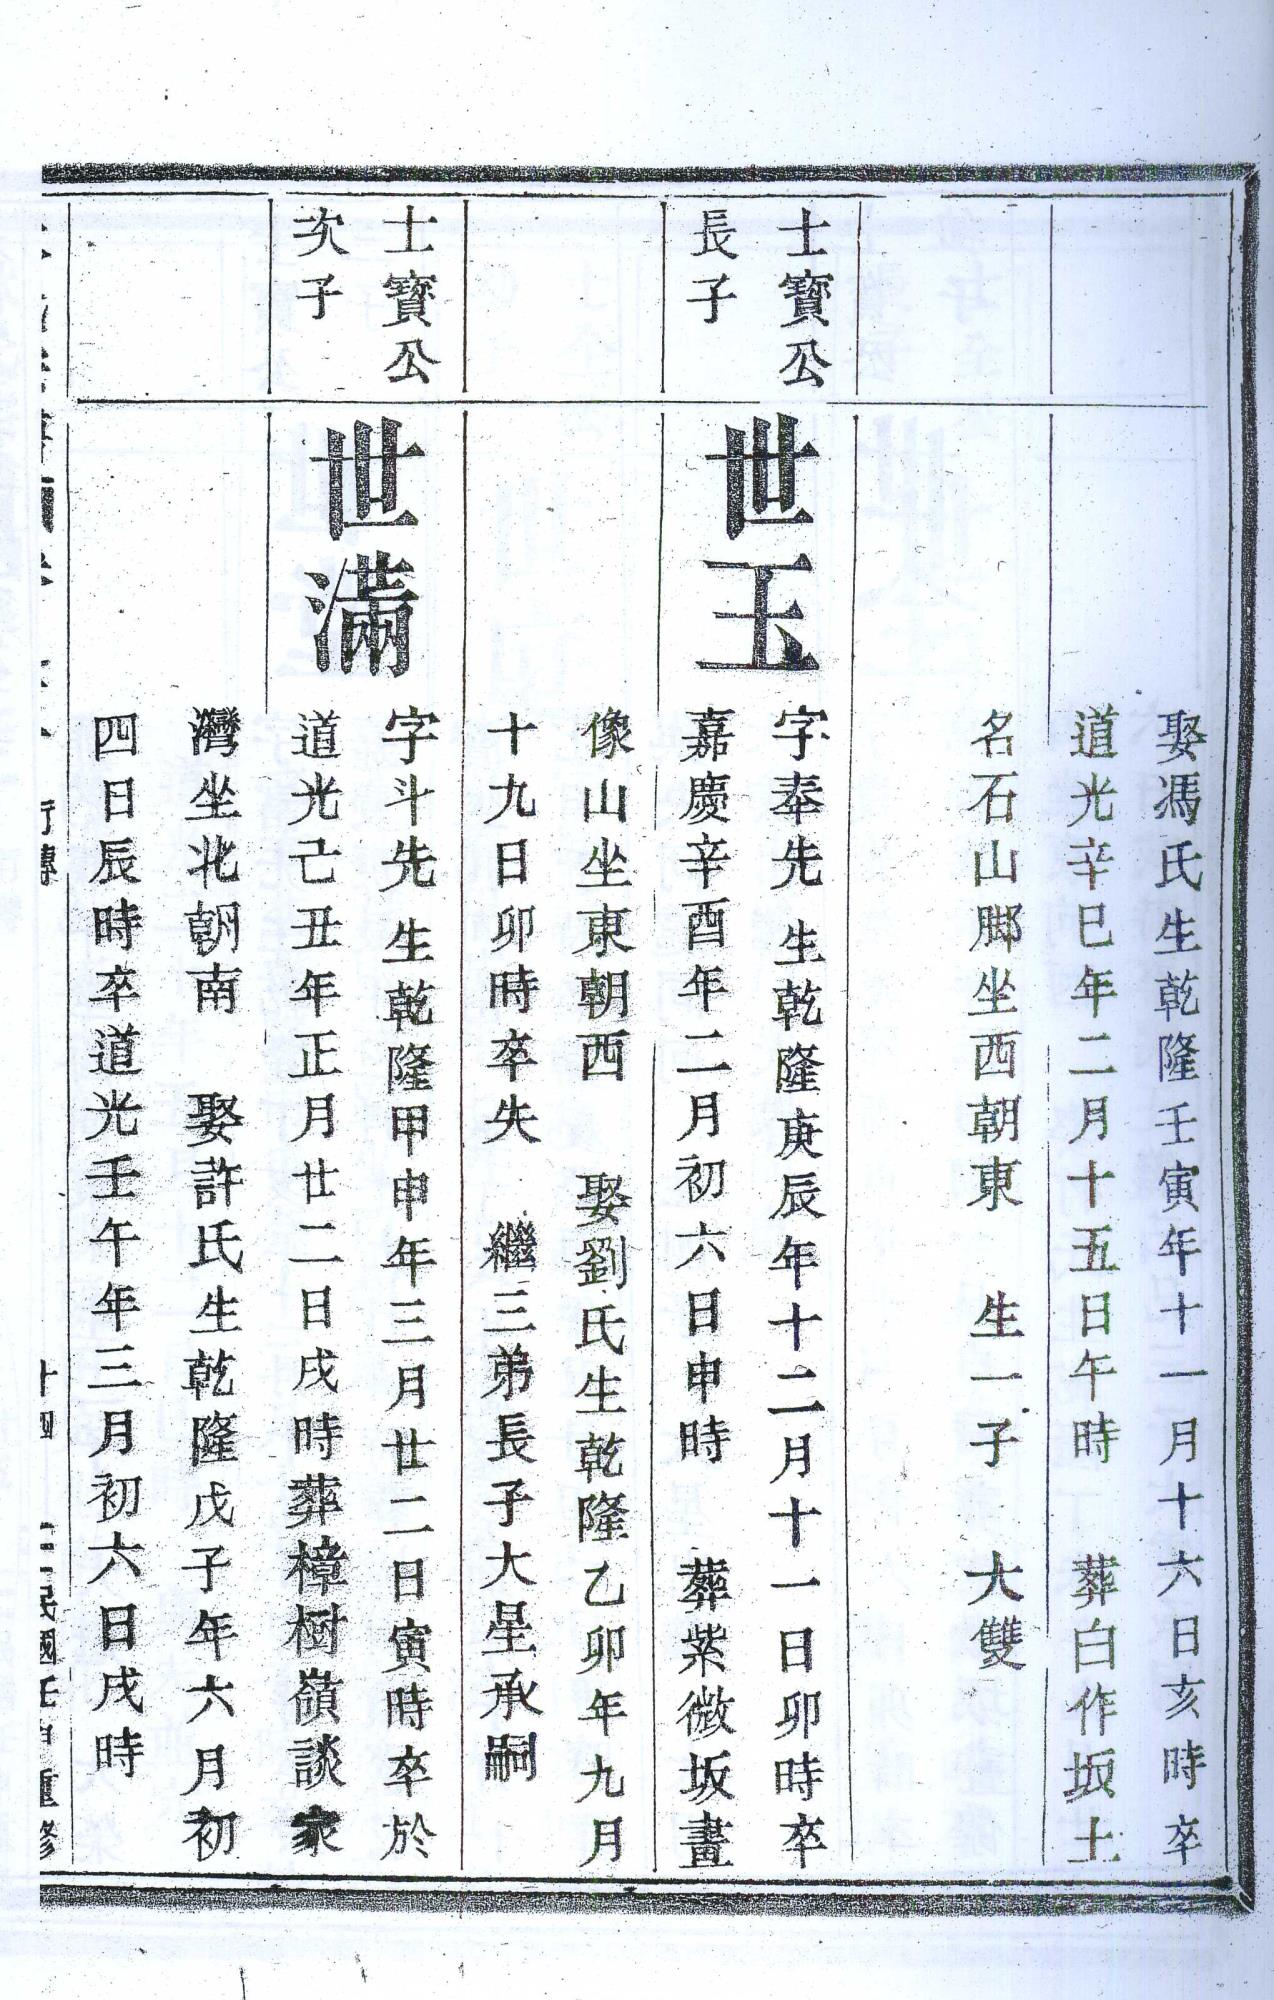 娶馮氏生乾隆壬寅年十一月十六日亥時卒
道光辛巳年二月十五日午時　葬白作坂土
名石山脚坐西朝東　生一子　大雙
士寶公
長子
世玉
字奉先　生乾隆庚辰年十二月十一日卯時卒
嘉慶辛酉年二月初六日申時　葬紫微坂畫
像山坐東朝西　娶劉氏生乾隆乙卯年九月
十九日卯時卒失　繼三弟長子大星承嗣
士寶公
次子
世滿
字斗先　生乾隆甲申年三月廿二日寅時卒於
道光己丑年正月廿二日戌時葬樟樹嶺談家
灣坐北朝南　娶許氏生乾隆戊子年六月初
四日辰時卒道光壬午年三月初六日戌時
行傳　十四　民國壬申重修